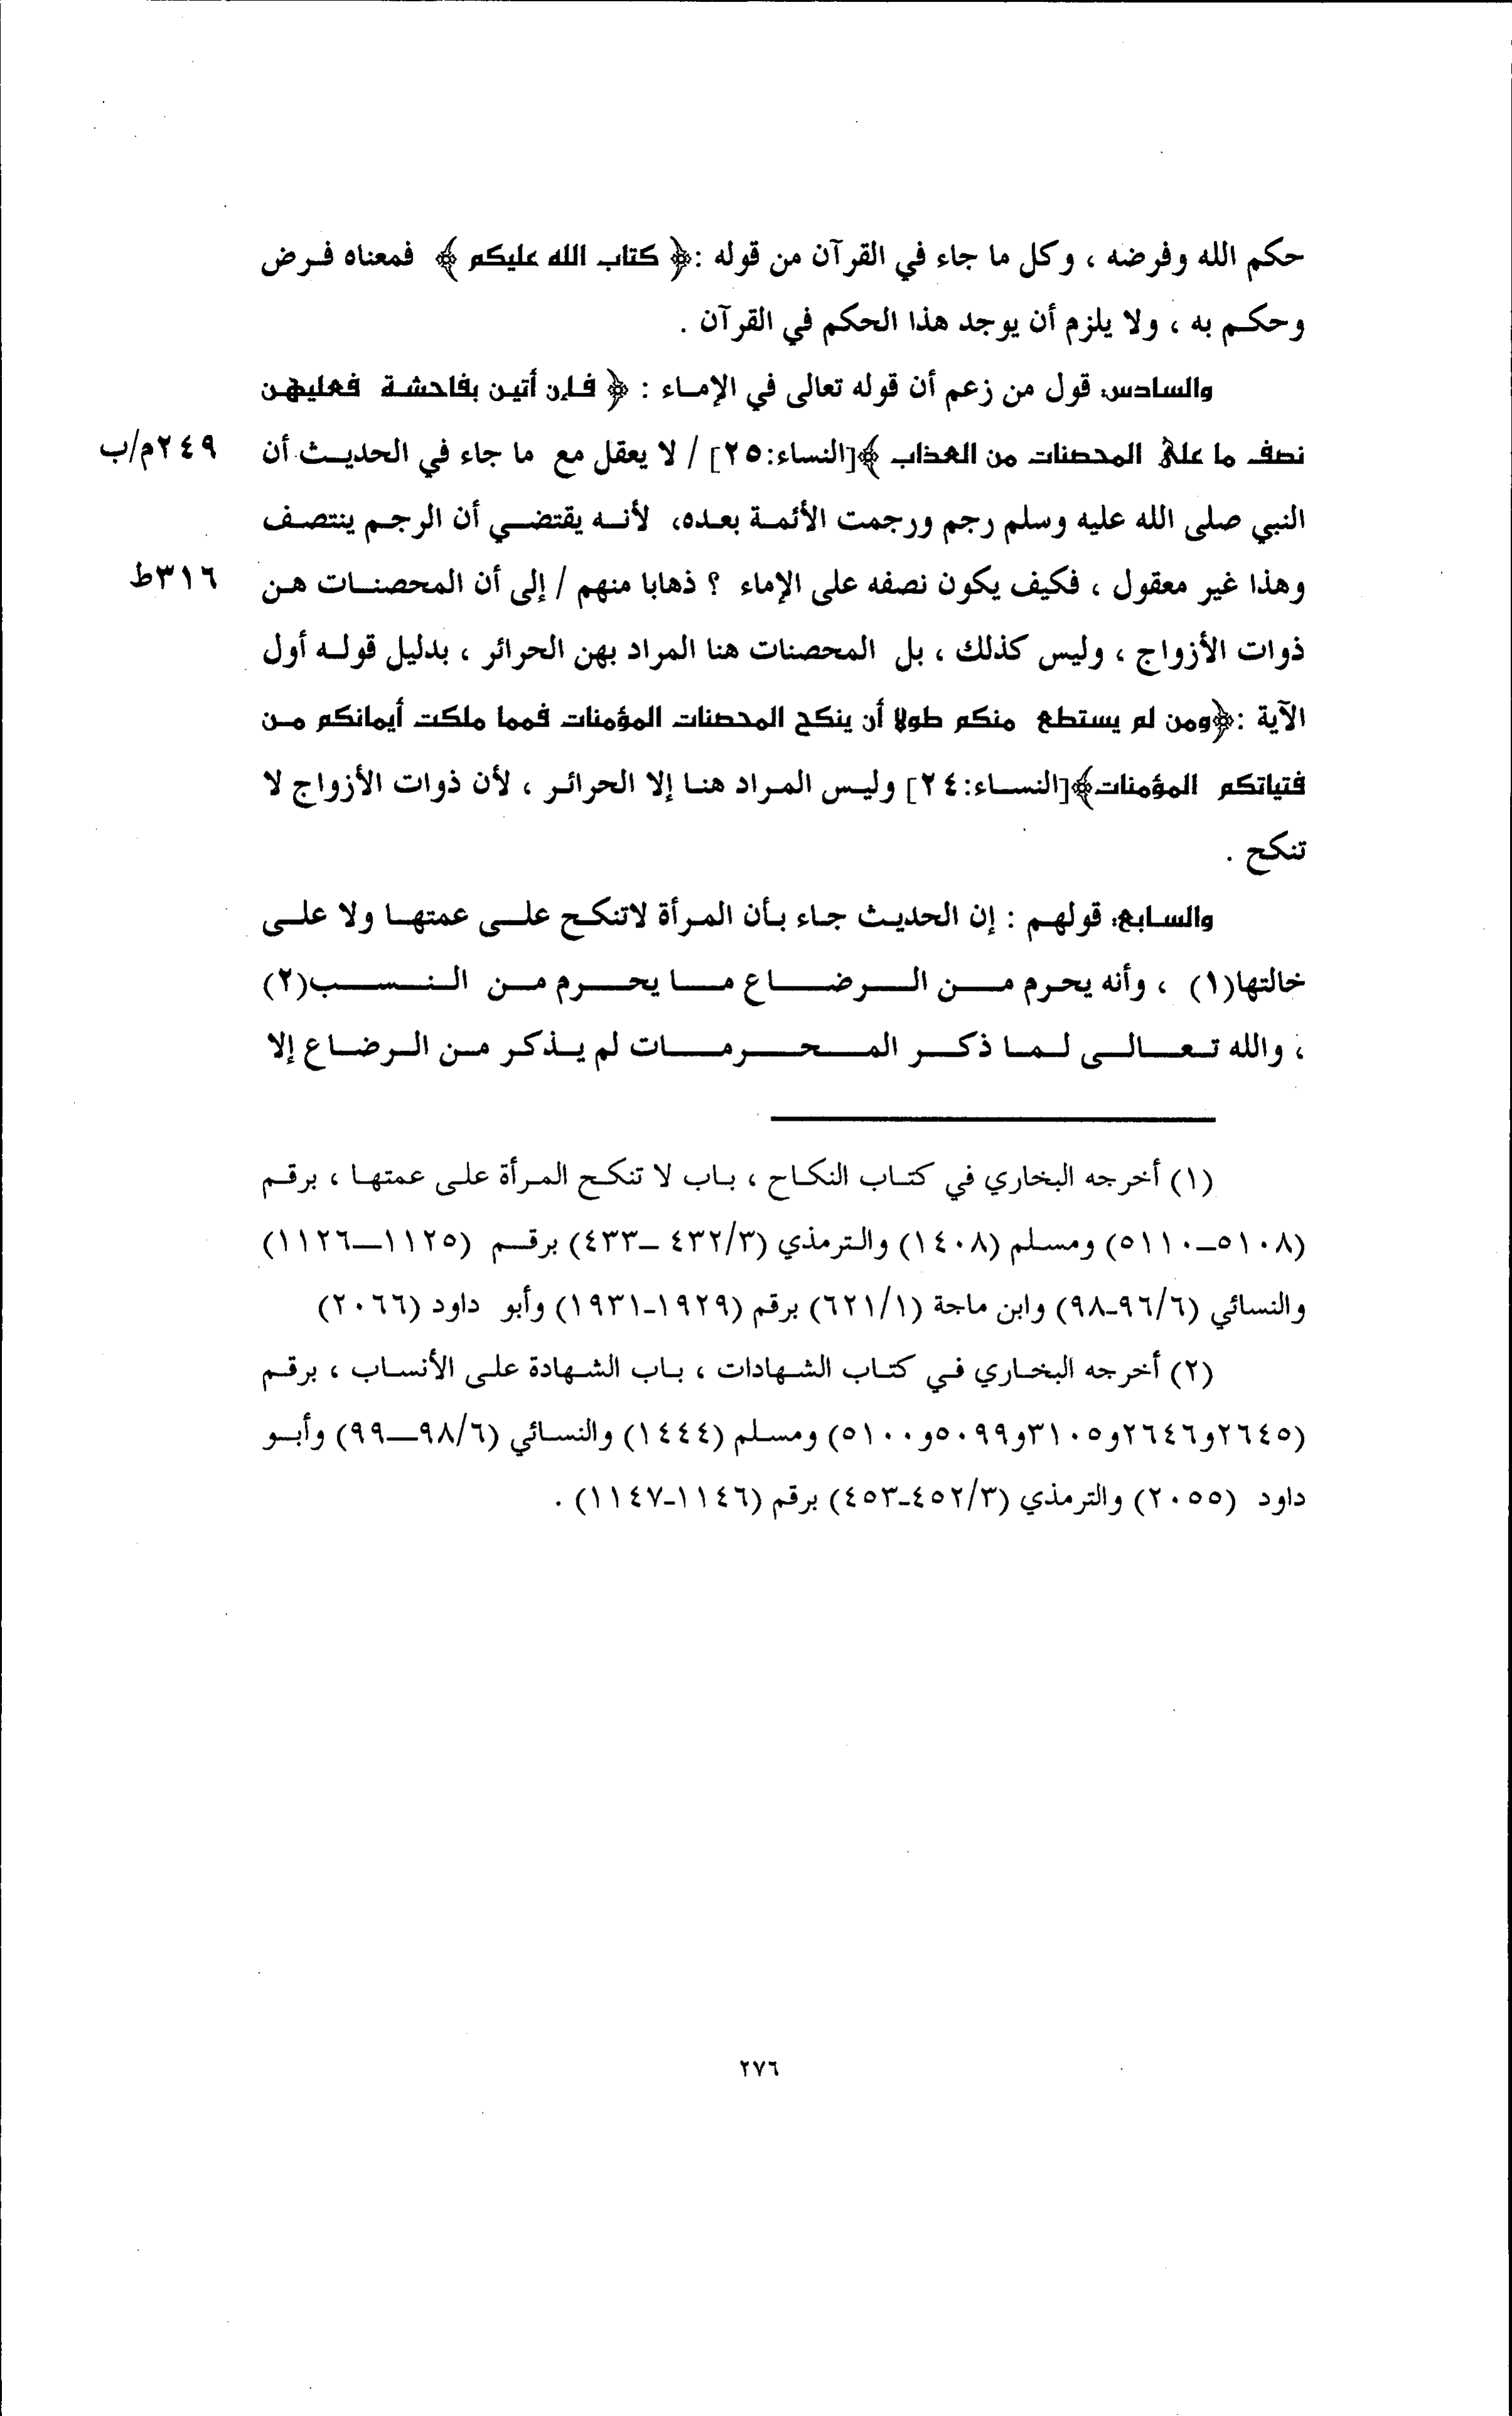 حكم الله وفرضه ، وكل ما جاء في القرآن من قوله :﴿ كتاب الله عليكم ﴾ فمعناه فرض
وحكم به ، ولا يلزم أن يوجد هذا الحكم في القرآن .
والسادس: قول من زعم أن قوله تعالى في الإماء : ﴿ فإن أتين بفاحشة فعليهن
نصف ما على المحصنات من العذاب ﴾[النساء:٢٥] / لا يعقل مع ما جاء في الحديث أن
٢٤٩م/ب
النبي صلى الله عليه وسلم رجم ورجمت الأئمة بعده، لأنه يقتضي أن الرجم ينتصف
وهذا غير معقول ، فكيف يكون نصفه على الإماء ؟ ذهابا منهم / إلى أن المحصنات هن
٣١٦ط
ذوات الأزواج ، وليس كذلك ، بل المحصنات هنا المراد بهن الحرائر ، بدليل قوله أول
الآية :﴿ومن لم يستطع منكم طولا أن ينكح المحصنات المؤمنات فمما ملكت أيمانكم من
فتياتكم المؤمنات﴾[النساء:٢٤] وليس المراد هنا إلا الحرائر ، لأن ذوات الأزواج لا
تنكح .
والسابع: قولهم : إن الحديث جاء بأن المرأة لاتنكح على عمتها ولا على
خالتها(١) ، وأنه يحرم من الرضاع ما يحرم من النسب(٢)
، والله تعالى لما ذكر المحرمات لم يذكر من الرضاع إلا
(١) أخرجه البخاري في كتاب النكاح ، باب لا تنكح المرأة على عمتها ، برقم
(٥١٠٨–٥١١٠) ومسلم (١٤٠٨) والترمذي (٤٣٢/٣ –٤٣٣) برقم (١١٢٥–١١٢٦)
والنسائي (٩٦/٦-٩٨) وابن ماجة (٦٢١/١) برقم (١٩٢٩-١٩٣١) وأبو داود (٢٠٦٦)
(٢) أخرجه البخاري في كتاب الشهادات ، باب الشهادة على الأنساب ، برقم
(٢٦٤٥و٢٦٤٦و٣١٠٥و٥٠٩٩و٥١٠٠) ومسلم (١٤٤٤) والنسائي (٩٨/٦–٩٩) وأبو
داود (٢٠٥٥) والترمذي (٤٥٢/٣-٤٥٣) برقم (١١٤٦-١١٤٧) .
٢٧٦